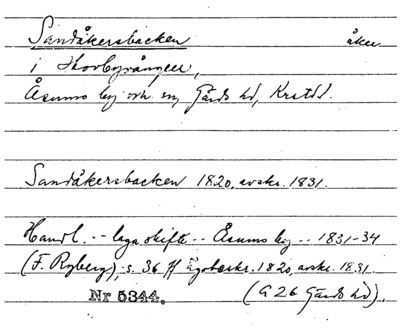 Sandåkersbacken åker
i Skovbyvången,
Åsumo by och sn, Gärds hd, Krstd.
Sandåkersbacken 1820, avskr. 1831.
Handl. -- laga skifte -- Åsumo by -- 1831-34
(F. Ryberg), s. 36 ff Ägobeskr. 1820, avskr. 1831.
Nr 5344. (G 26 Gärds hd).